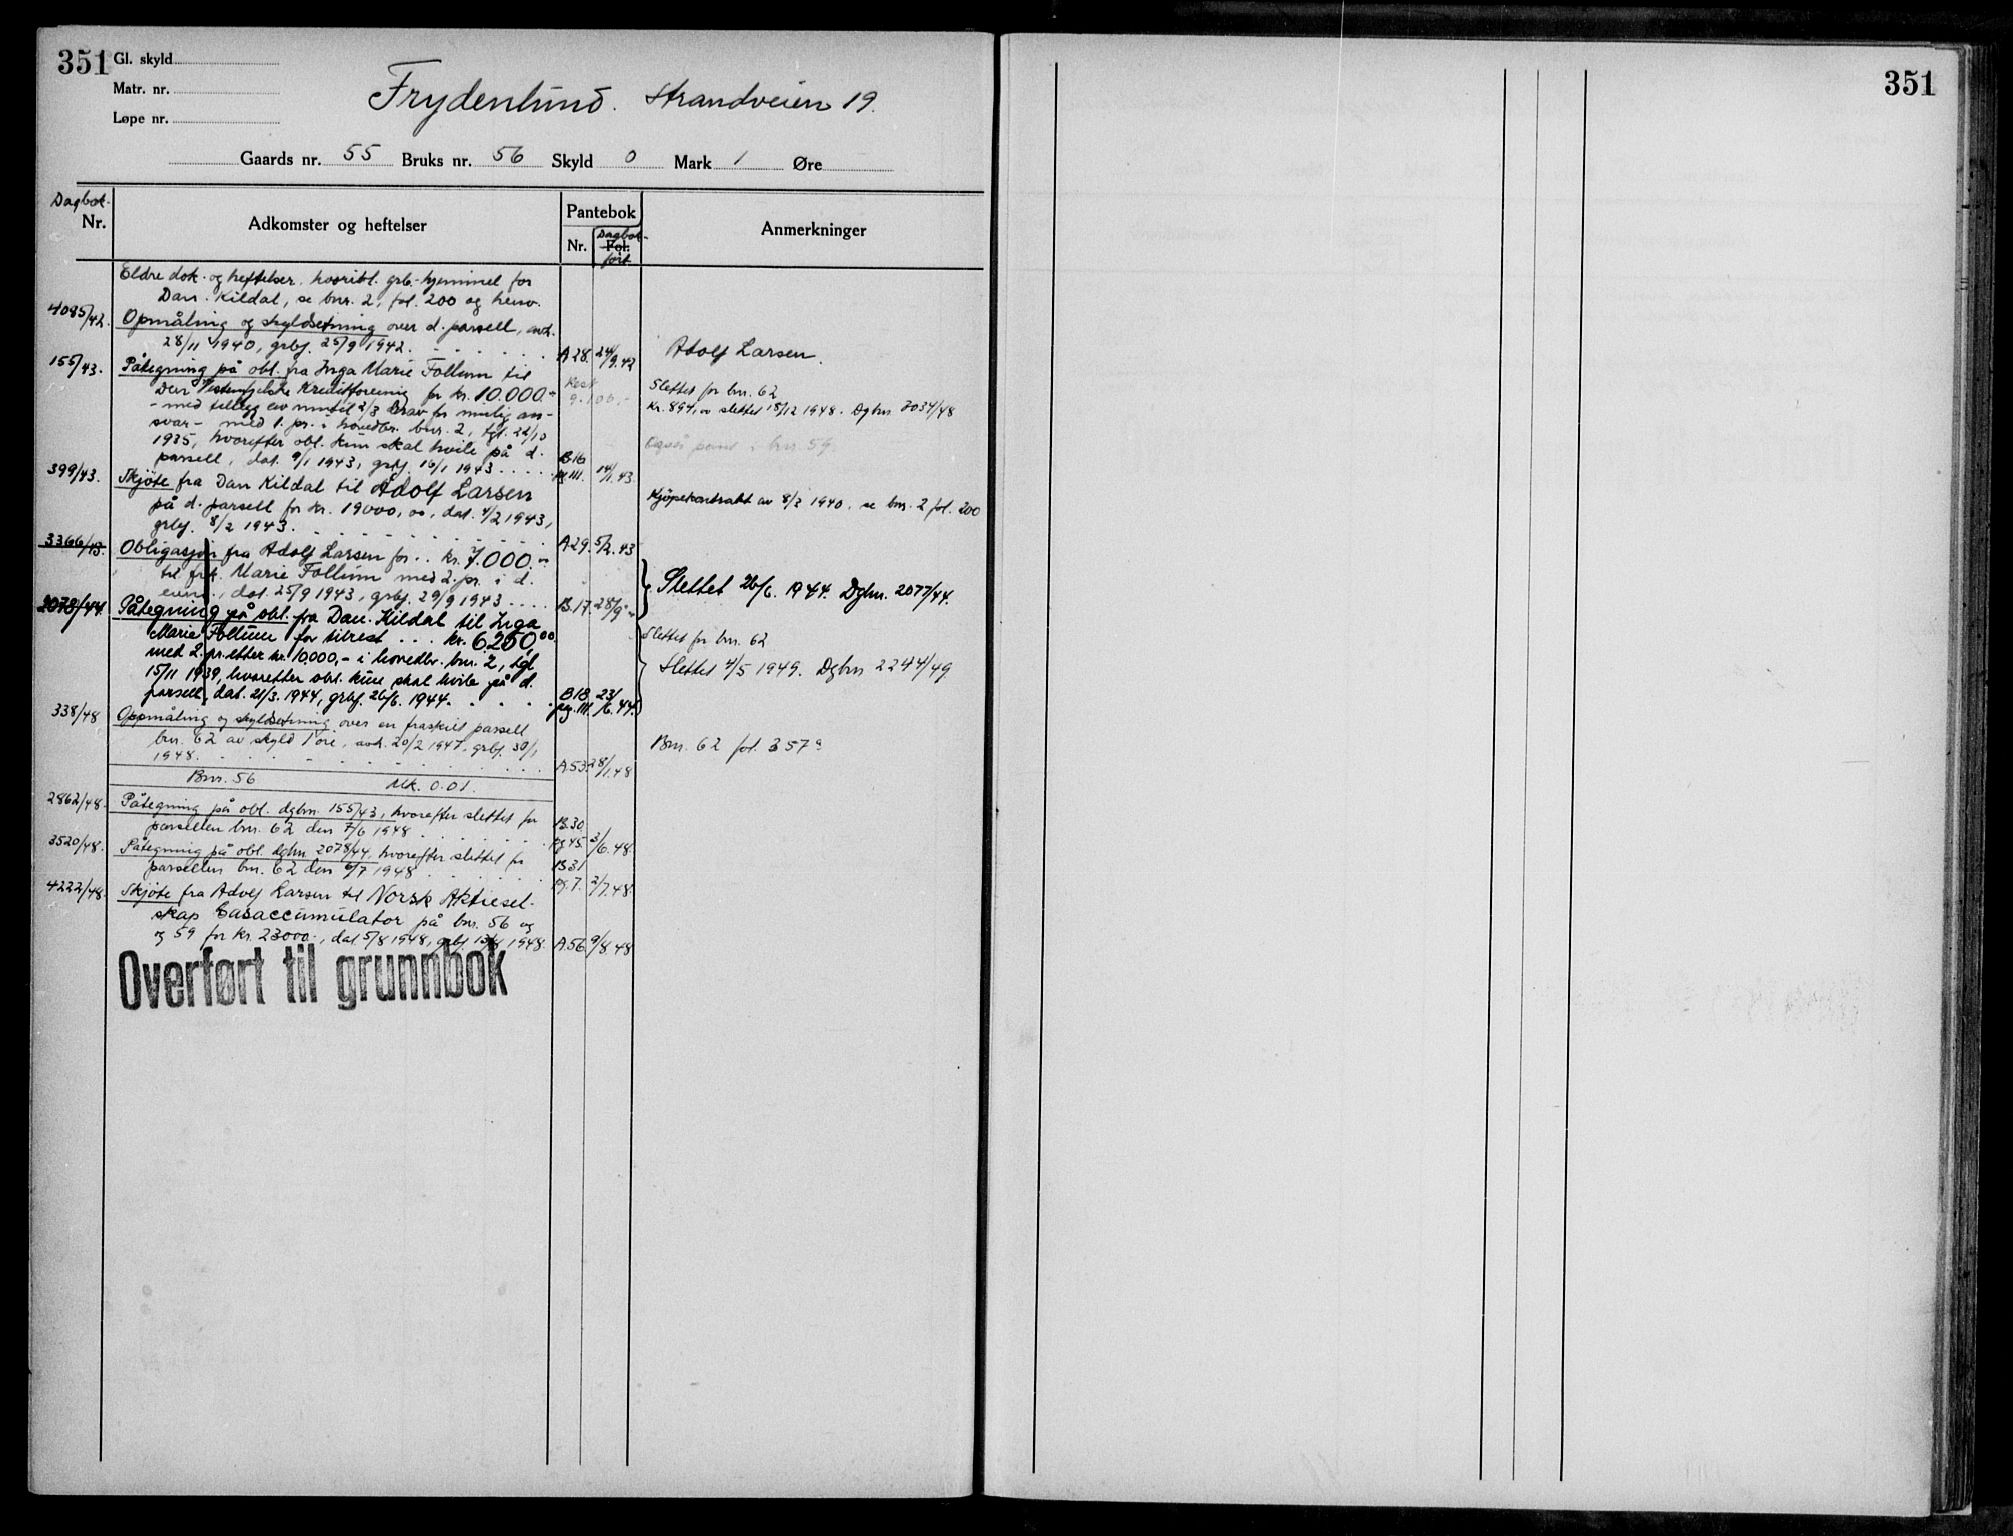 351
Gl. skyld
Matr. nr.
Løpe nr.
Frydenlund. Strandveien 19.
Gaards nr. 55 Bruks nr. 56 Skyld 0 Mark 1 Øre
Dagbok-
Nr.
Adkomster og heftelser
Pantebok
Nr.
Dagbok-
Fol.
ført
Anmerkninger
Eldre dok. og heftelser, hvoribl. grb.-hjemmel for
Dan. Kildal, se bnr. 2, fol. 200 og henv.
4085/42. Opmåling og skyldsetning over d. parsell, avh.
28/11 1940, grbf. 25/9 1942. A 28. 24/9.42 Adolf Larsen.
155/43. Påtegning på obl. fra Inga Marie Follum til
Den Vestenfjelske Kreditforening for kr. 10.000.- Rest Slettet for bnr. 62
- med tillegg av inntil 2/3 herav for mulig an- 9.106,- kr. 894,00 slettet 18/12 1948. Dgbnr. 7034/48
svar - med 1. pr. i hovedbr. bnr. 2, tgl. 22/10
1935, hvorefter obl. kun skal hvile på d. Også pant i bnr. 59
parsell, dat. 9/1 1943, grbf. 16/1 1943 B 16 pg. 111. 14/1.43
399/43. Skjøte fra Dan Kildal til Adolf Larsen
på d. parsell for kr. 19000,00, dat. 4/2 1943, Kjøpekontrakt av 8/2 1940, se bnr. 2 fol. 200
grbf. 8/2 1943. A 29. 5/2.43
3366/43. Obligasjon fra Adolf Larsen for .. kr. 7.000.-
til frk. Marie Follum med 2. pr. i d.
eiend., dat. 25/9 1943, grbf. 29/9 1943 .... B. 17. 28/9 Slettet 26/6. 1944. Dgbnr. 2077/44.
2078/44. Påtegning på obl. fra Dan. Kildal til Inga
Marie Follum for tilrest ... kr. 6.250,00 Slettet for bnr. 62
med 2. pr. etter kr. 10.000,- i hovedbr. bnr. 2, tgl. Slettet 4/5 1949. Dgbnr 2244/49
15/11 1939, hvoretter obl. kun skal hvile på d.
parsell, dat. 21/3. 1944, grbf. 26/6. 1944. B 18 pg. 111. 23/6.44.
338/48 Oppmåling og skyldsetning over en fraskilt parsell
bnr. 62 av skyld 1 øre, avh. 20/2 1947, grbf. 30/1 Bnr. 62 fol. 357a
1948. A. 53. 28/1.48
Bnr. 56 Mk. 0.01.
2862/48. Påtegning på obl. dgbnr. 155/43, hvorefter slettet for
parsellen bnr. 62 den 7/6 1948 B. 30 pg 45. 3/6.48.
3520/48. Påtegning på obl. dgbnr 2078/44, hvorefter slettet for
parsellen bnr. 62 den 6/7 1948 B 31 pg. 7. 2/7.48.
4222/48. Skjøte fra Adolf Larsen til Norsk Aktiesel-
skap Gasaccumulator på bnr. 56 og
og 59 for kr. 23000.-, dat 5/8 1948, grbf 13/8 1948. A. 56 9/8.48
Overført til grunnbok
351